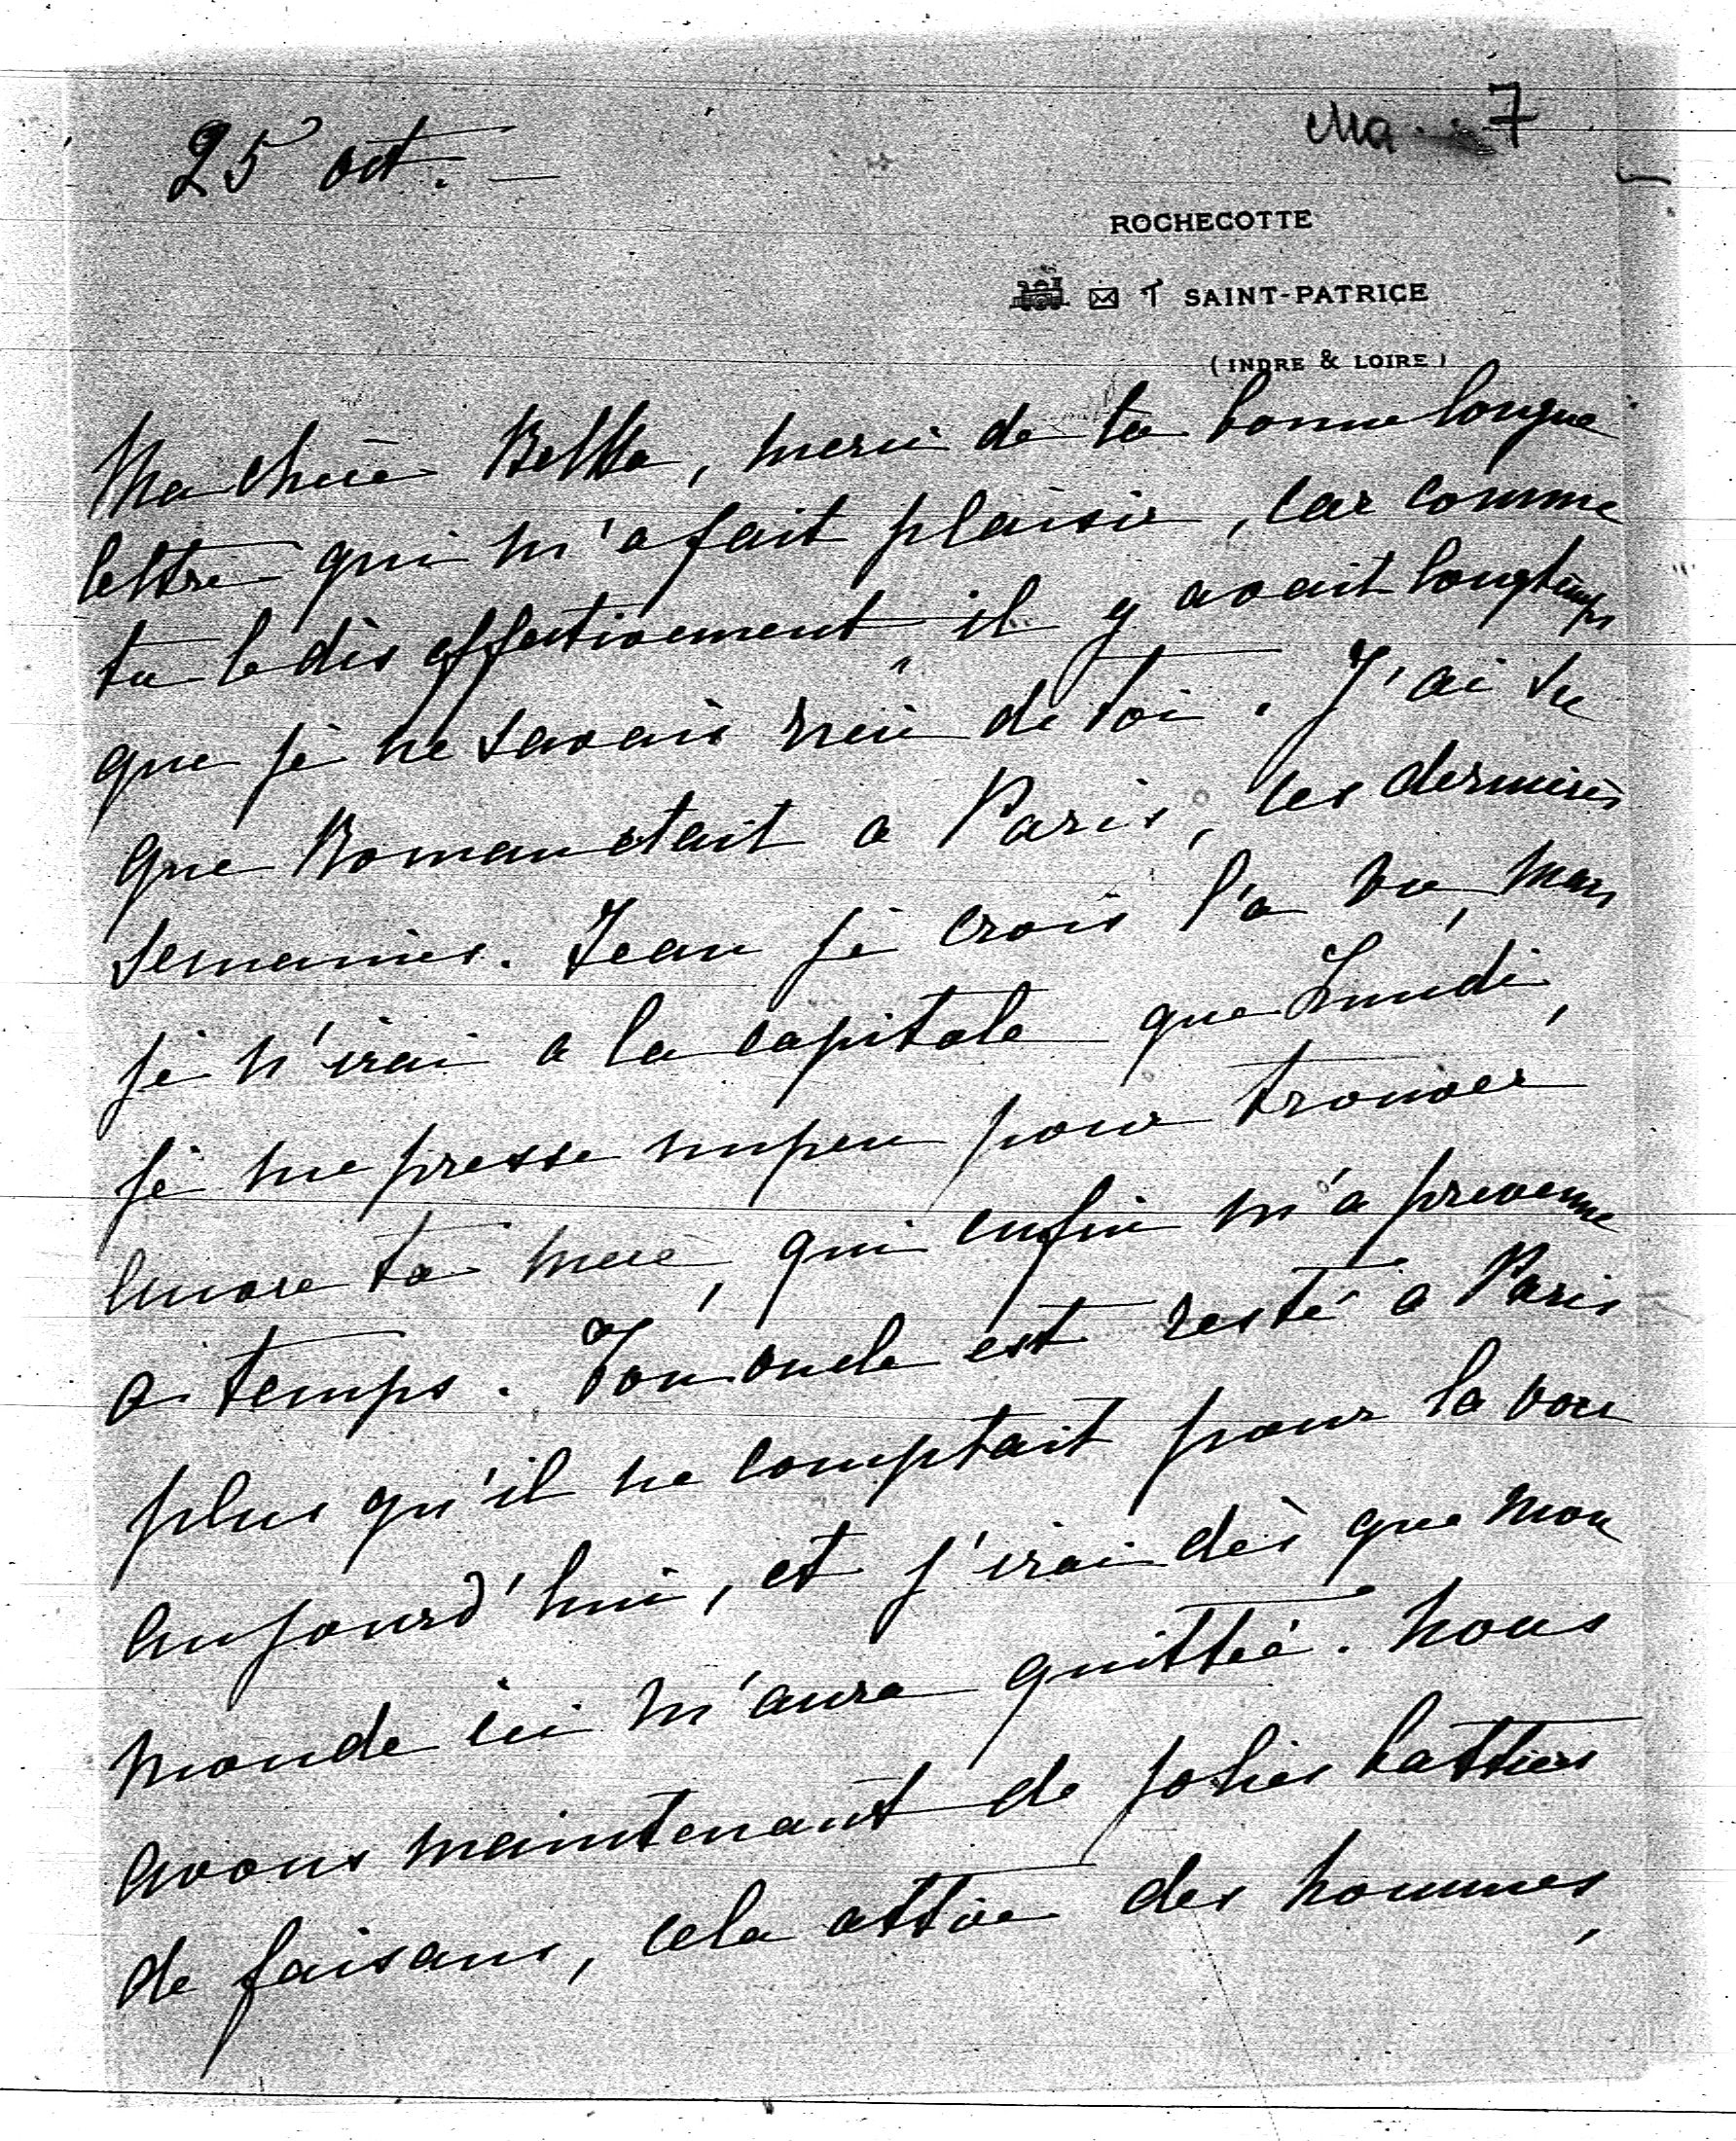 25 oct. —
Ma 7
ROCHECOTTE
T SAINT-PATRICE
(INDRE & LOIRE)
Ma chère Bettka, merci de ta bonne longue
lettre qui m'a fait plaisir, car comme
tu le dis effectivement il y avait longtemps
que je ne savais rien de toi. J'ai su
que Roman était a Paris, les dernières
semaines. Jean je crois l'a vu, mais
je n'irai a la capitale que Lundi,
je me presse un peu pour trouver
encore ta mère, qui enfin m'a prevenue
a temps. Ton oncle est resté a Paris
plus qu'il ne comptait pour la voir
aujourd'hui, et j'irai dès que mon
monde ici m'aura quittée. Nous
avons maintenant de jolies battues
de faisans, cela attire des hommes,